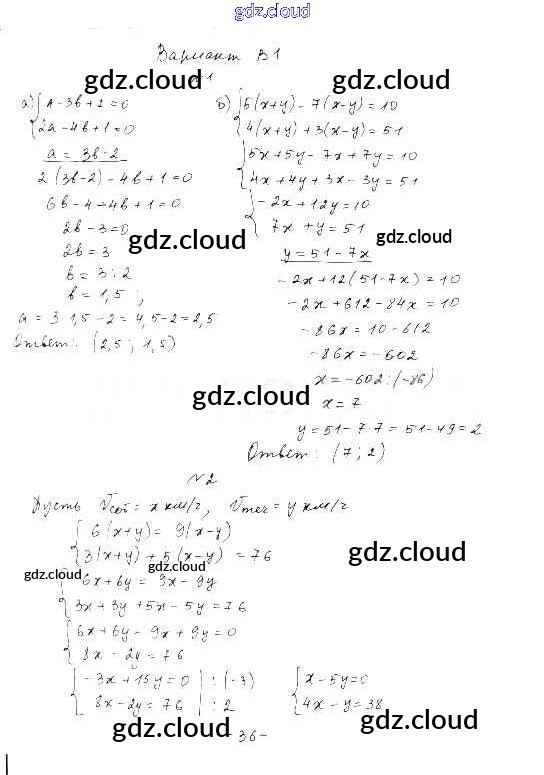 gdz.cloud
Вариант В1
gdz.cloud gdz.cloud
№1
а) { а - 3b + 2 = 0
2а - 4b + 1 = 0
а = 3b - 2
2 (3b - 2) - 4b + 1 = 0
6b - 4 - 4b + 1 = 0
2b - 3 = 0
2b = 3
b = 3 : 2
b = 1,5 ;
а = 3 · 1,5 - 2 = 4,5 - 2 = 2,5
Ответ: (2,5 ; 1,5)
б) { 5(x+y) - 7(x-y) = 10
4(x+y) + 3(x-y) = 51
{ 5x + 5y - 7x + 7y = 10
4x + 4y + 3x - 3y = 51
{ - 2x + 12y = 10
7x + y = 51
gdz.cloud gdz.cloud
y = 51 - 7x
- 2x + 12(51 - 7x) = 10
- 2x + 612 - 84x = 10
- 86x = 10 - 612
- 86x = - 602
x = - 602 : (-86)
gdz.cloud
x = 7
y = 51 - 7 · 7 = 51 - 49 = 2
Ответ: (7 ; 2)
№2
Пусть Vсоб = x км/ч, Vтеч = y км/ч
{ 6(x+y) = 9(x-y)
3(x+y) + 5(x-y) = 76
gdz.cloud gdz.cloud gdz.cloud
{ 6x + 6y = 9x - 9y
3x + 3y + 5x - 5y = 76
{ 6x + 6y - 9x + 9y = 0
8x - 2y = 76
{ - 3x + 15y = 0 | : (-3)
8x - 2y = 76 | : 2
{ x - 5y = 0
4x - y = 38
gdz.cloud gdz.cloud
- 36 -